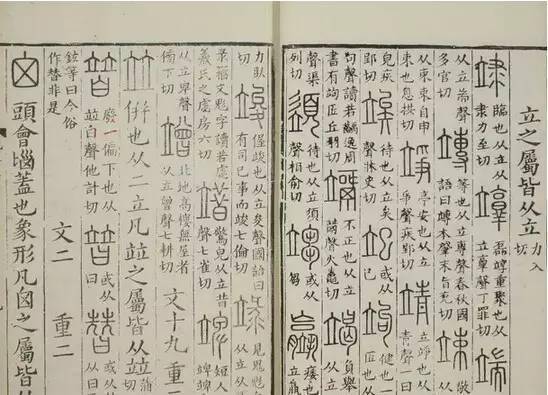 立之屬皆从立 力入切
臨也从立从隶 力至切 磊 重聚也从立𦎫聲 丁罪切 端
从立耑聲 多官切 竱 等也从立專聲春秋國語曰竱本肇末 旨兖切 竦 敬
从束束自申束也 息拱切 竫 亭安也从立爭聲 疾郢切 靖 立竫也从立青聲
皃 疾郢切 竢 待也从立矣聲 牀史切 或从巳 竘 健也一曰匠也从立
句聲讀若齲逸周書有竘匠 丘羽切 不正也从立 聲 火鼃切 竭 負舉也从立
聲 渠列切 待也从立須聲 相俞切 或从芻 痿也从立
力臥切 竣 偓竣也从立夋聲國語曰有司已事而竣 七倫切 見鬼
彔籀文鬽字讀若虙羲氏之虙 房六切 驚皃从立昔聲 七雀切 短人立
从立卑聲 傍下切 竲 北地高樓無屋者从立曾聲 七耕切 文十九 重二
竝 併也从二立凡竝之屬皆从竝 蒲
暜 廢一偏下也从竝白聲 他計切 或从曰 或从 从曰
鉉等曰今俗作替非是 文二 重二
囟 頭會匘蓋也象形凡囟之屬皆从